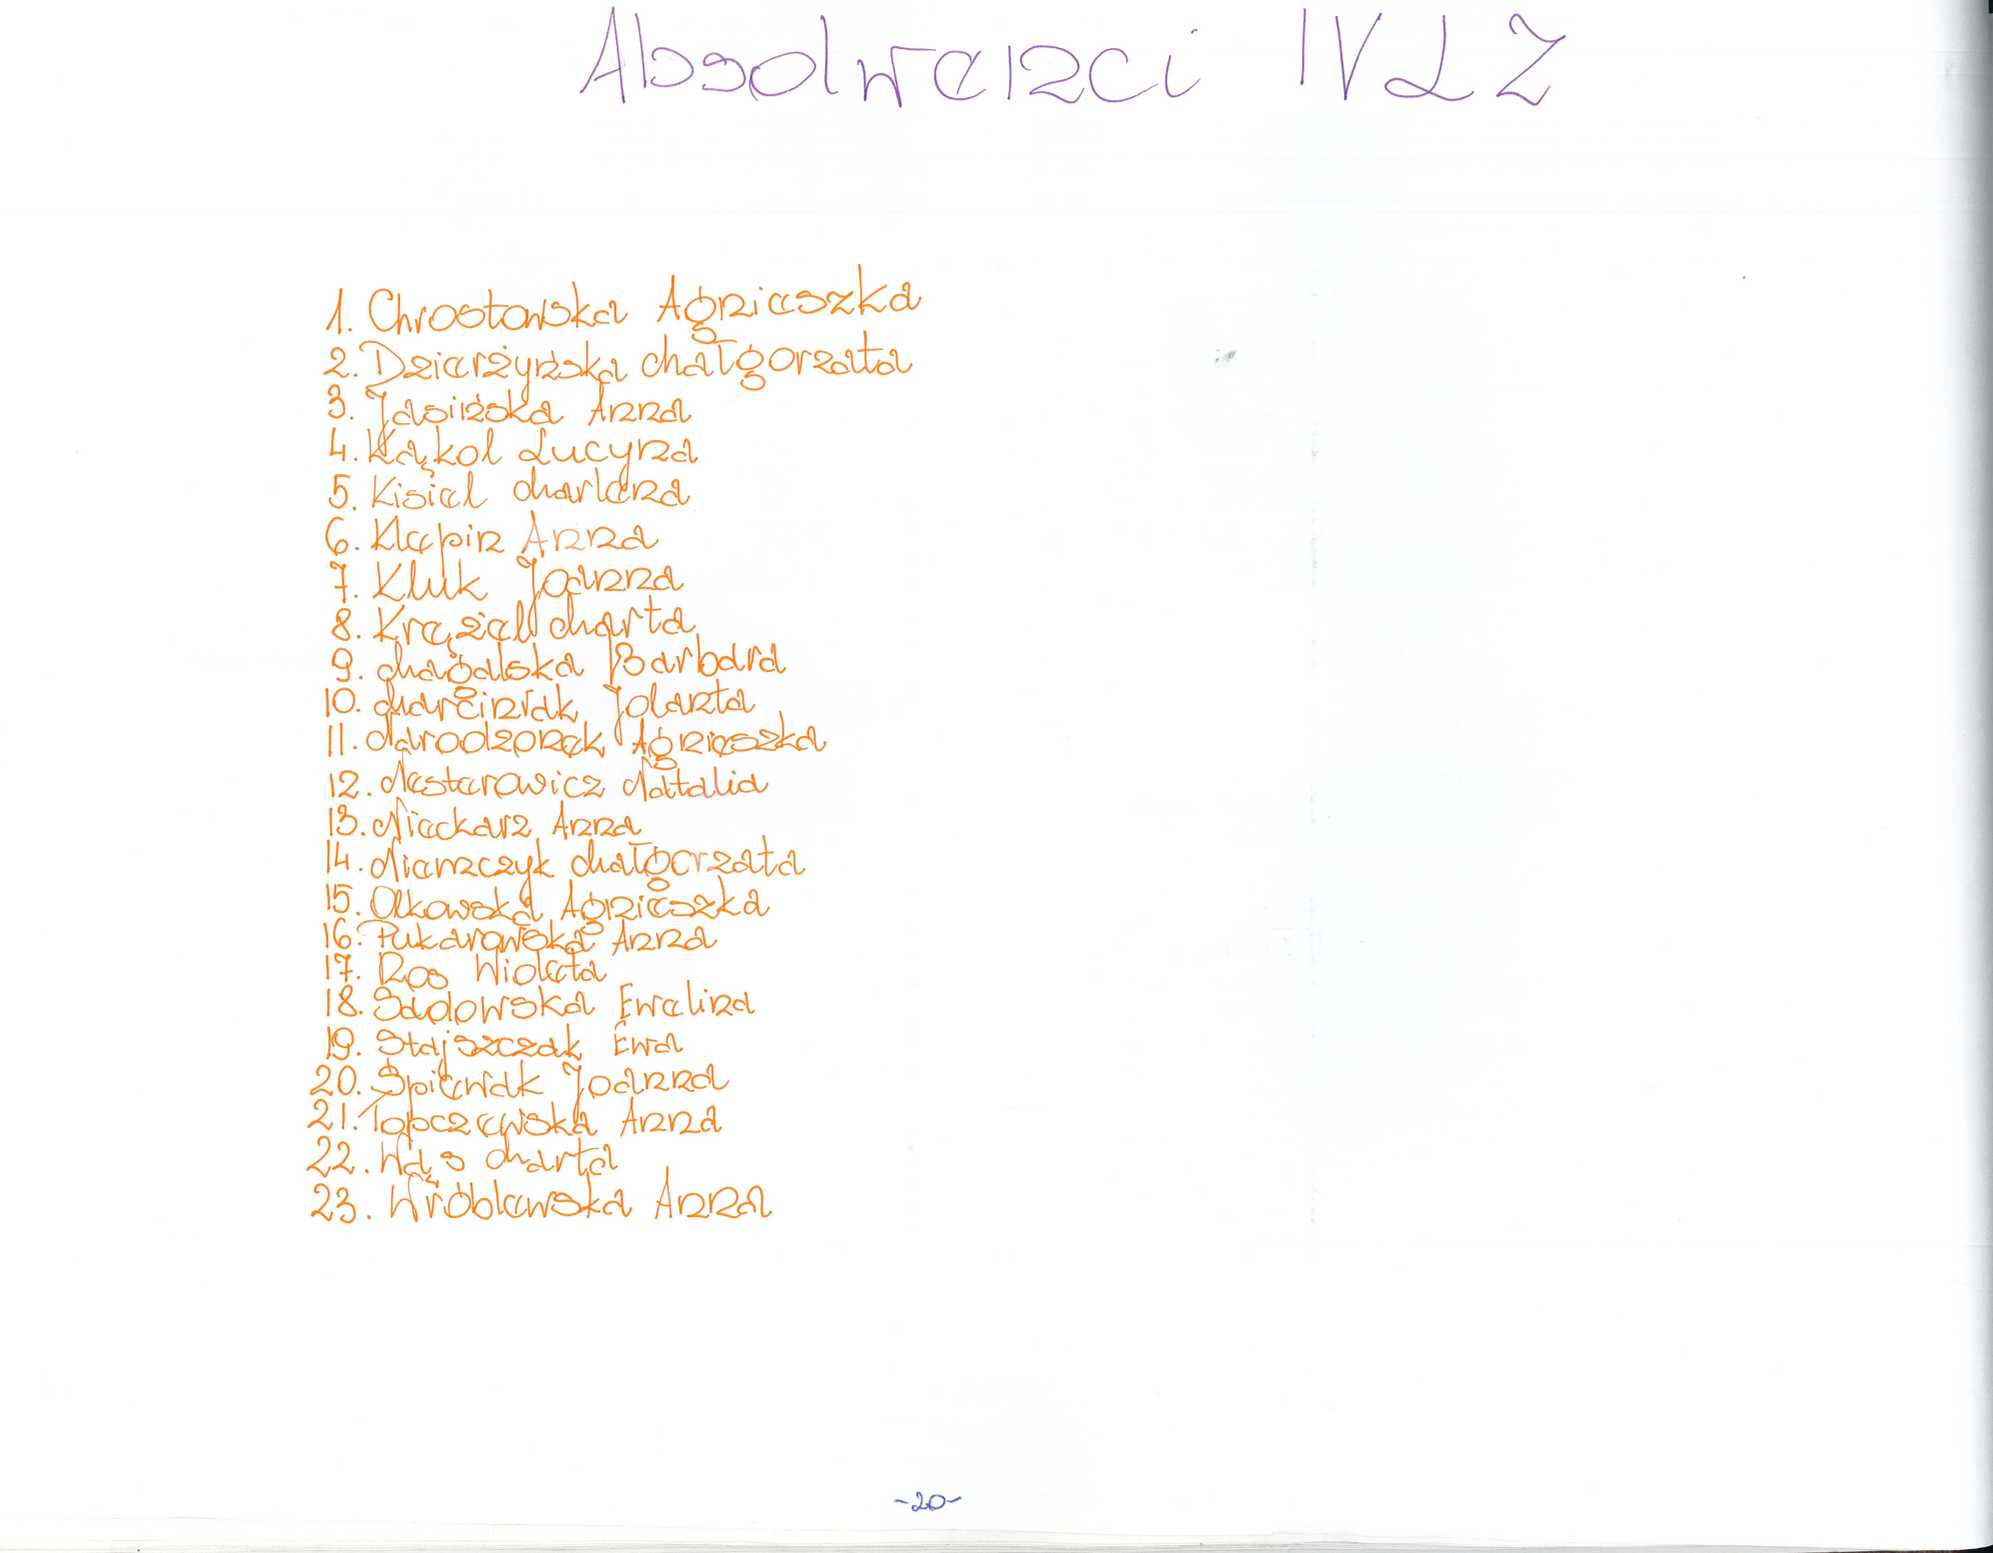 Absolwenci IV LZ
1. Chrostowska Agnieszka
2. Dzierżyńska Małgorzata
3. Jasińska Anna
4. Kąkol Lucyna
5. Kisiel Marlena
6. Klepin Anna
7. Kluk Joanna
8. Krężel Marta
9. Magalska Barbara
10. Marciniak Jolanta
11. Narodzonek Agnieszka
12. Nesterowicz Natalia
13. Nieckarz Anna
14. Niemczyk Małgorzata
15. Olkowska Agnieszka
16. Pukarowska Anna
17. Ros Wioleta
18. Sadowska Ewelina
19. Stajszczak Ewa
20. Śpiewak Joanna
21. Topczewska Anna
22. Wąs Marta
23. Wróblewska Anna
-20-